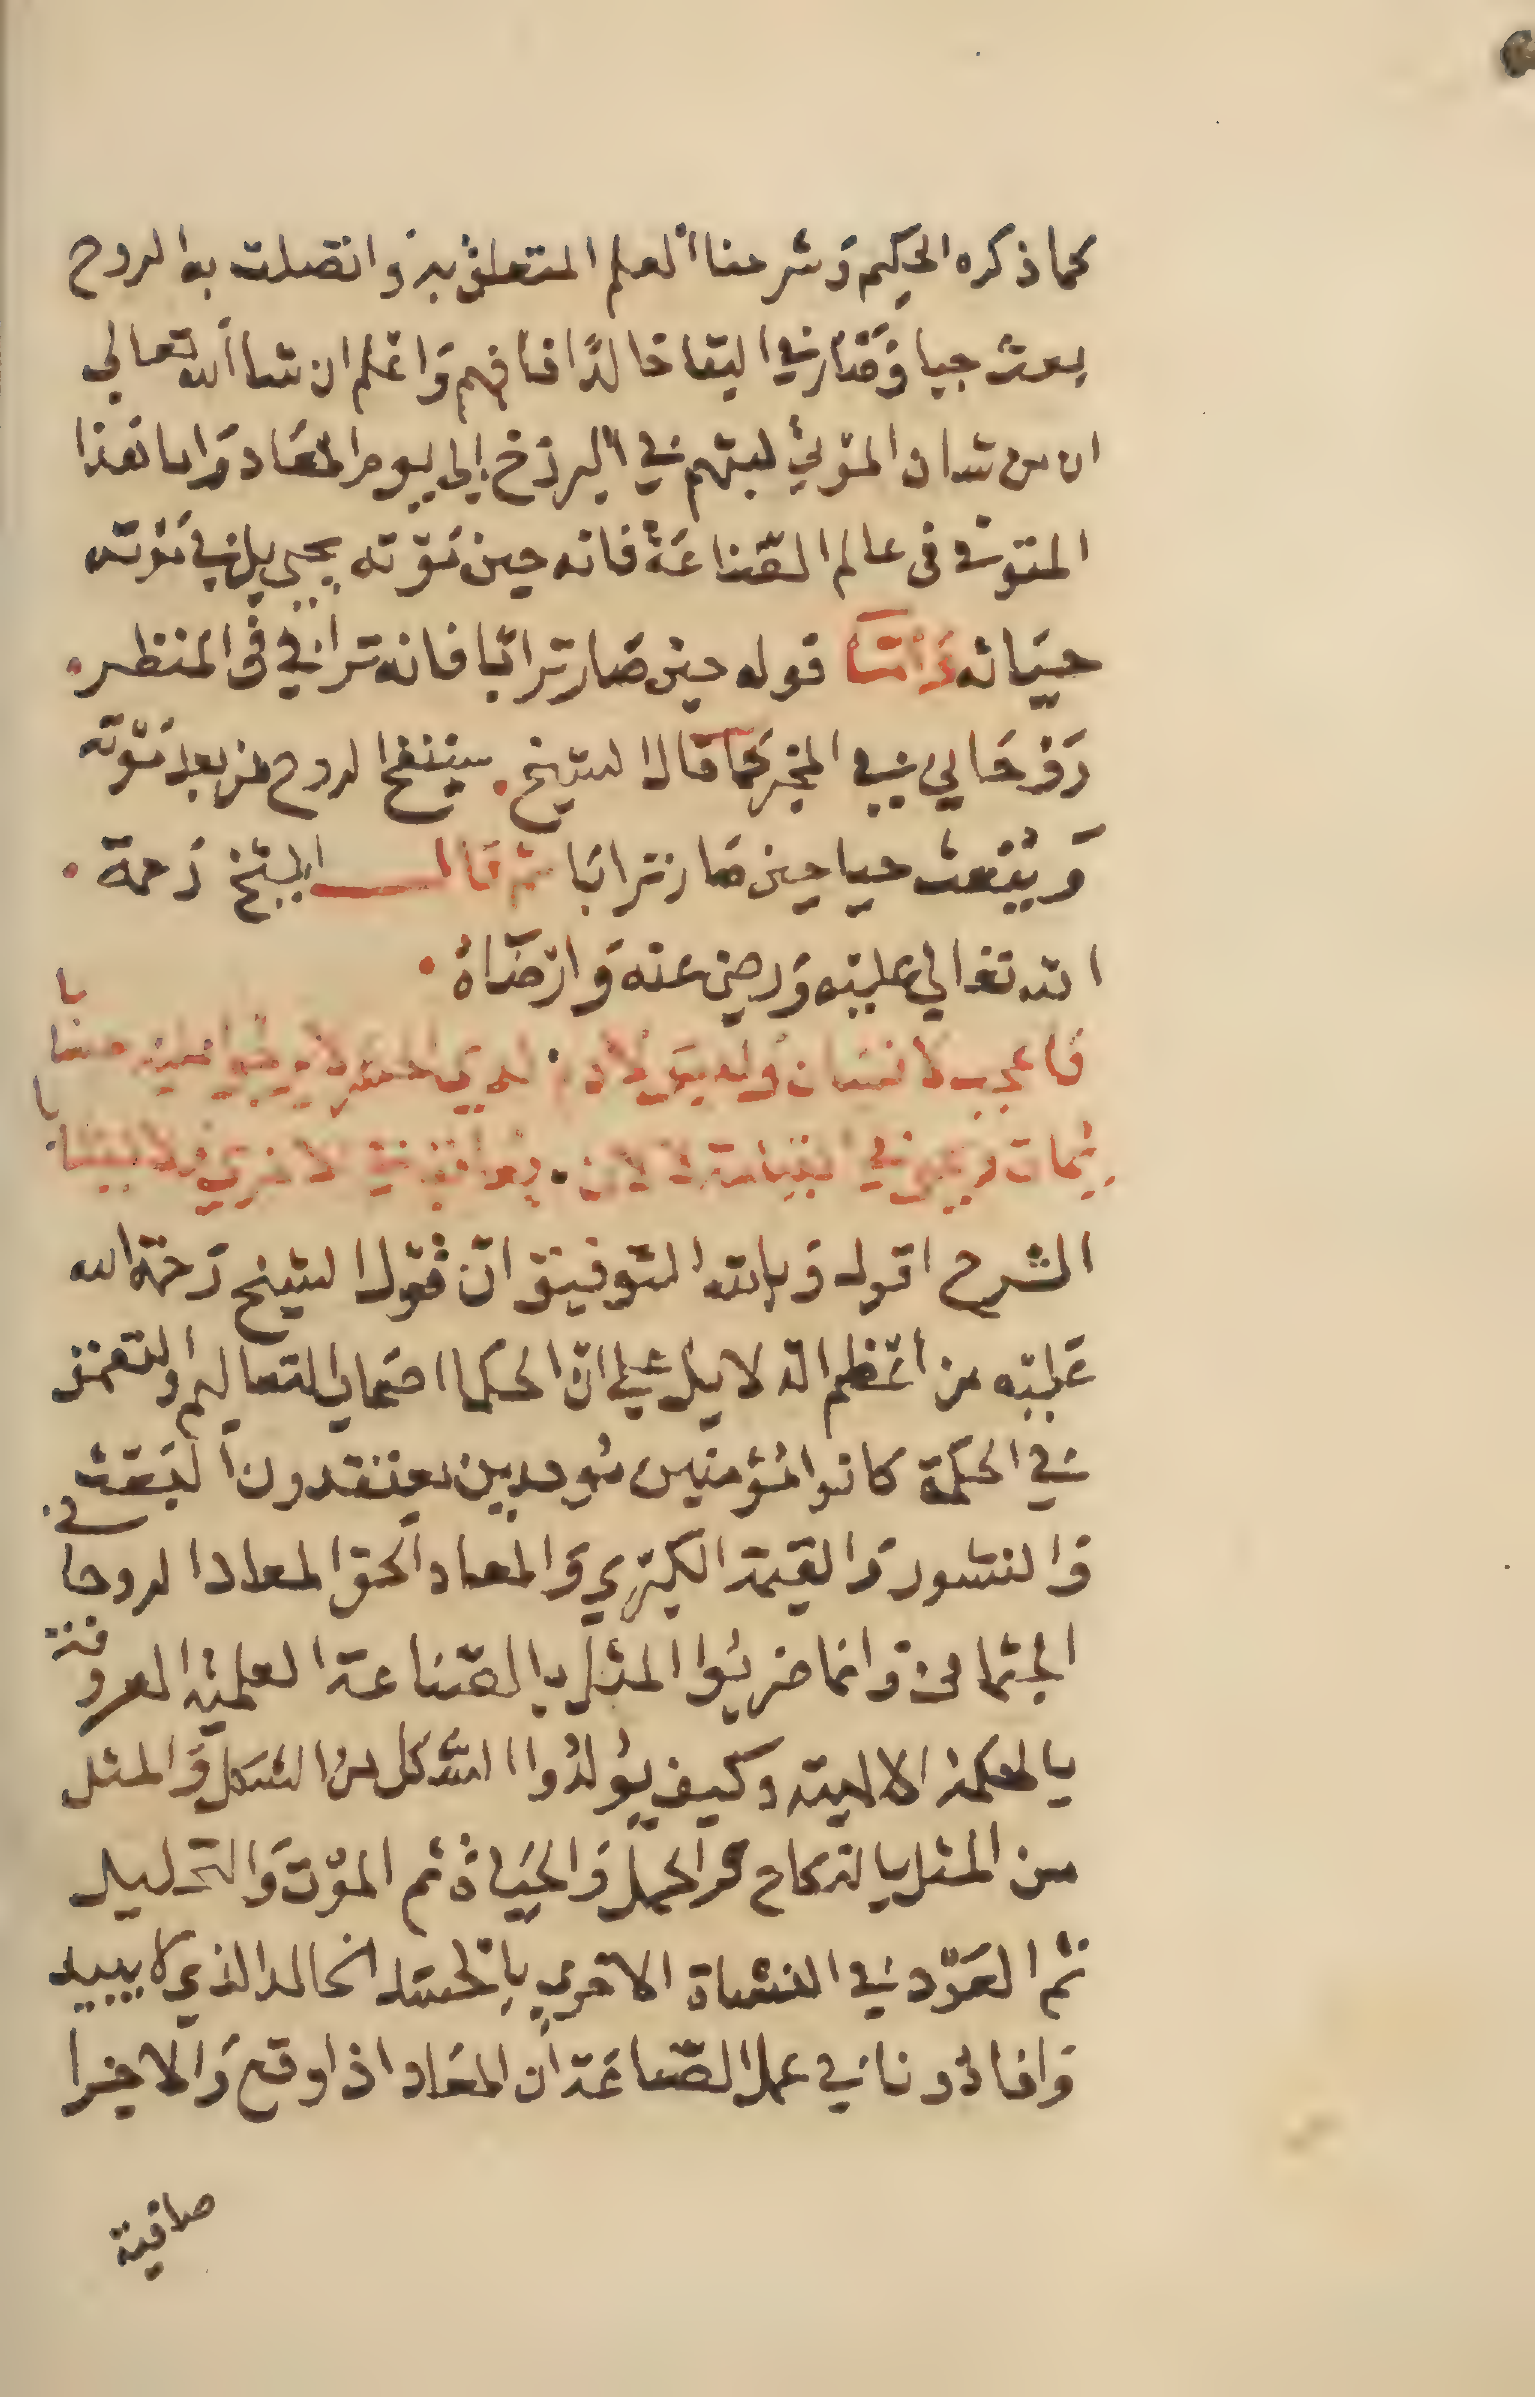 كما ذكره الحكيم وشرحنا العلم المتعلق به واتصلت به الروح
بعث حيا وصار في البقا خالدا فافهم واعلم ان شاالله تعالي
ان من شان الموتي لبثهم في البرزخ الي يوم المعاد واما هذا
المتوفي في عالم الصناعة فانه حين موته يحيي بل في موته
حياته واما قوله حين صار ترابا فانه ترابي في المنظر .
روحاني في المخبر كما قال الشيخ . سينفخ الروح من بعد موته
وينبعث حيا حين صار ترابا ثم قال الشيخ رحمة .
الله تعالي عليه ورضي عنه وارضاه .
فاعجب لانسان
مات في القيامة
الشرح اقول وبالله التوفيق ان قول الشيخ رحمة الله
عليه من اعظم الدلايل علي ان الحكما اصحاب التعاليم و
في الحكمة كانوا مؤمنين موحدين يعتقدون البعث
والنشور والقيمة الكبري والمعاد الحق المعاد الروحاني
الجثماني وانما ضربوا المثل بالصناعة العلمية المعروفة
بالحكمة الالهية وكيف يولدوا الشكل من الشكل والمثل
من المثل بالنكاح ثم الحمل والحياة ثم الموت والتحليل
ثم العود في النشاة الاخري بالجسد الخالد الذي لا يبيد
وافادونا في عمل الصناعة ان المعاد اذا وقع والاجزا
صافية